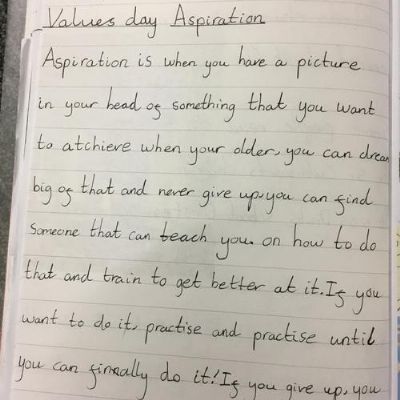 Values day Aspiration
Aspiration is when you have a picture
in your head of something that you want
to atchieve when your older, you can dream
big of that and never give up, you can find
someone that can teach you on how to do
that and train to get better at it. If you
want to do it, practise and practise until
you can finnally do it! If you give up, you